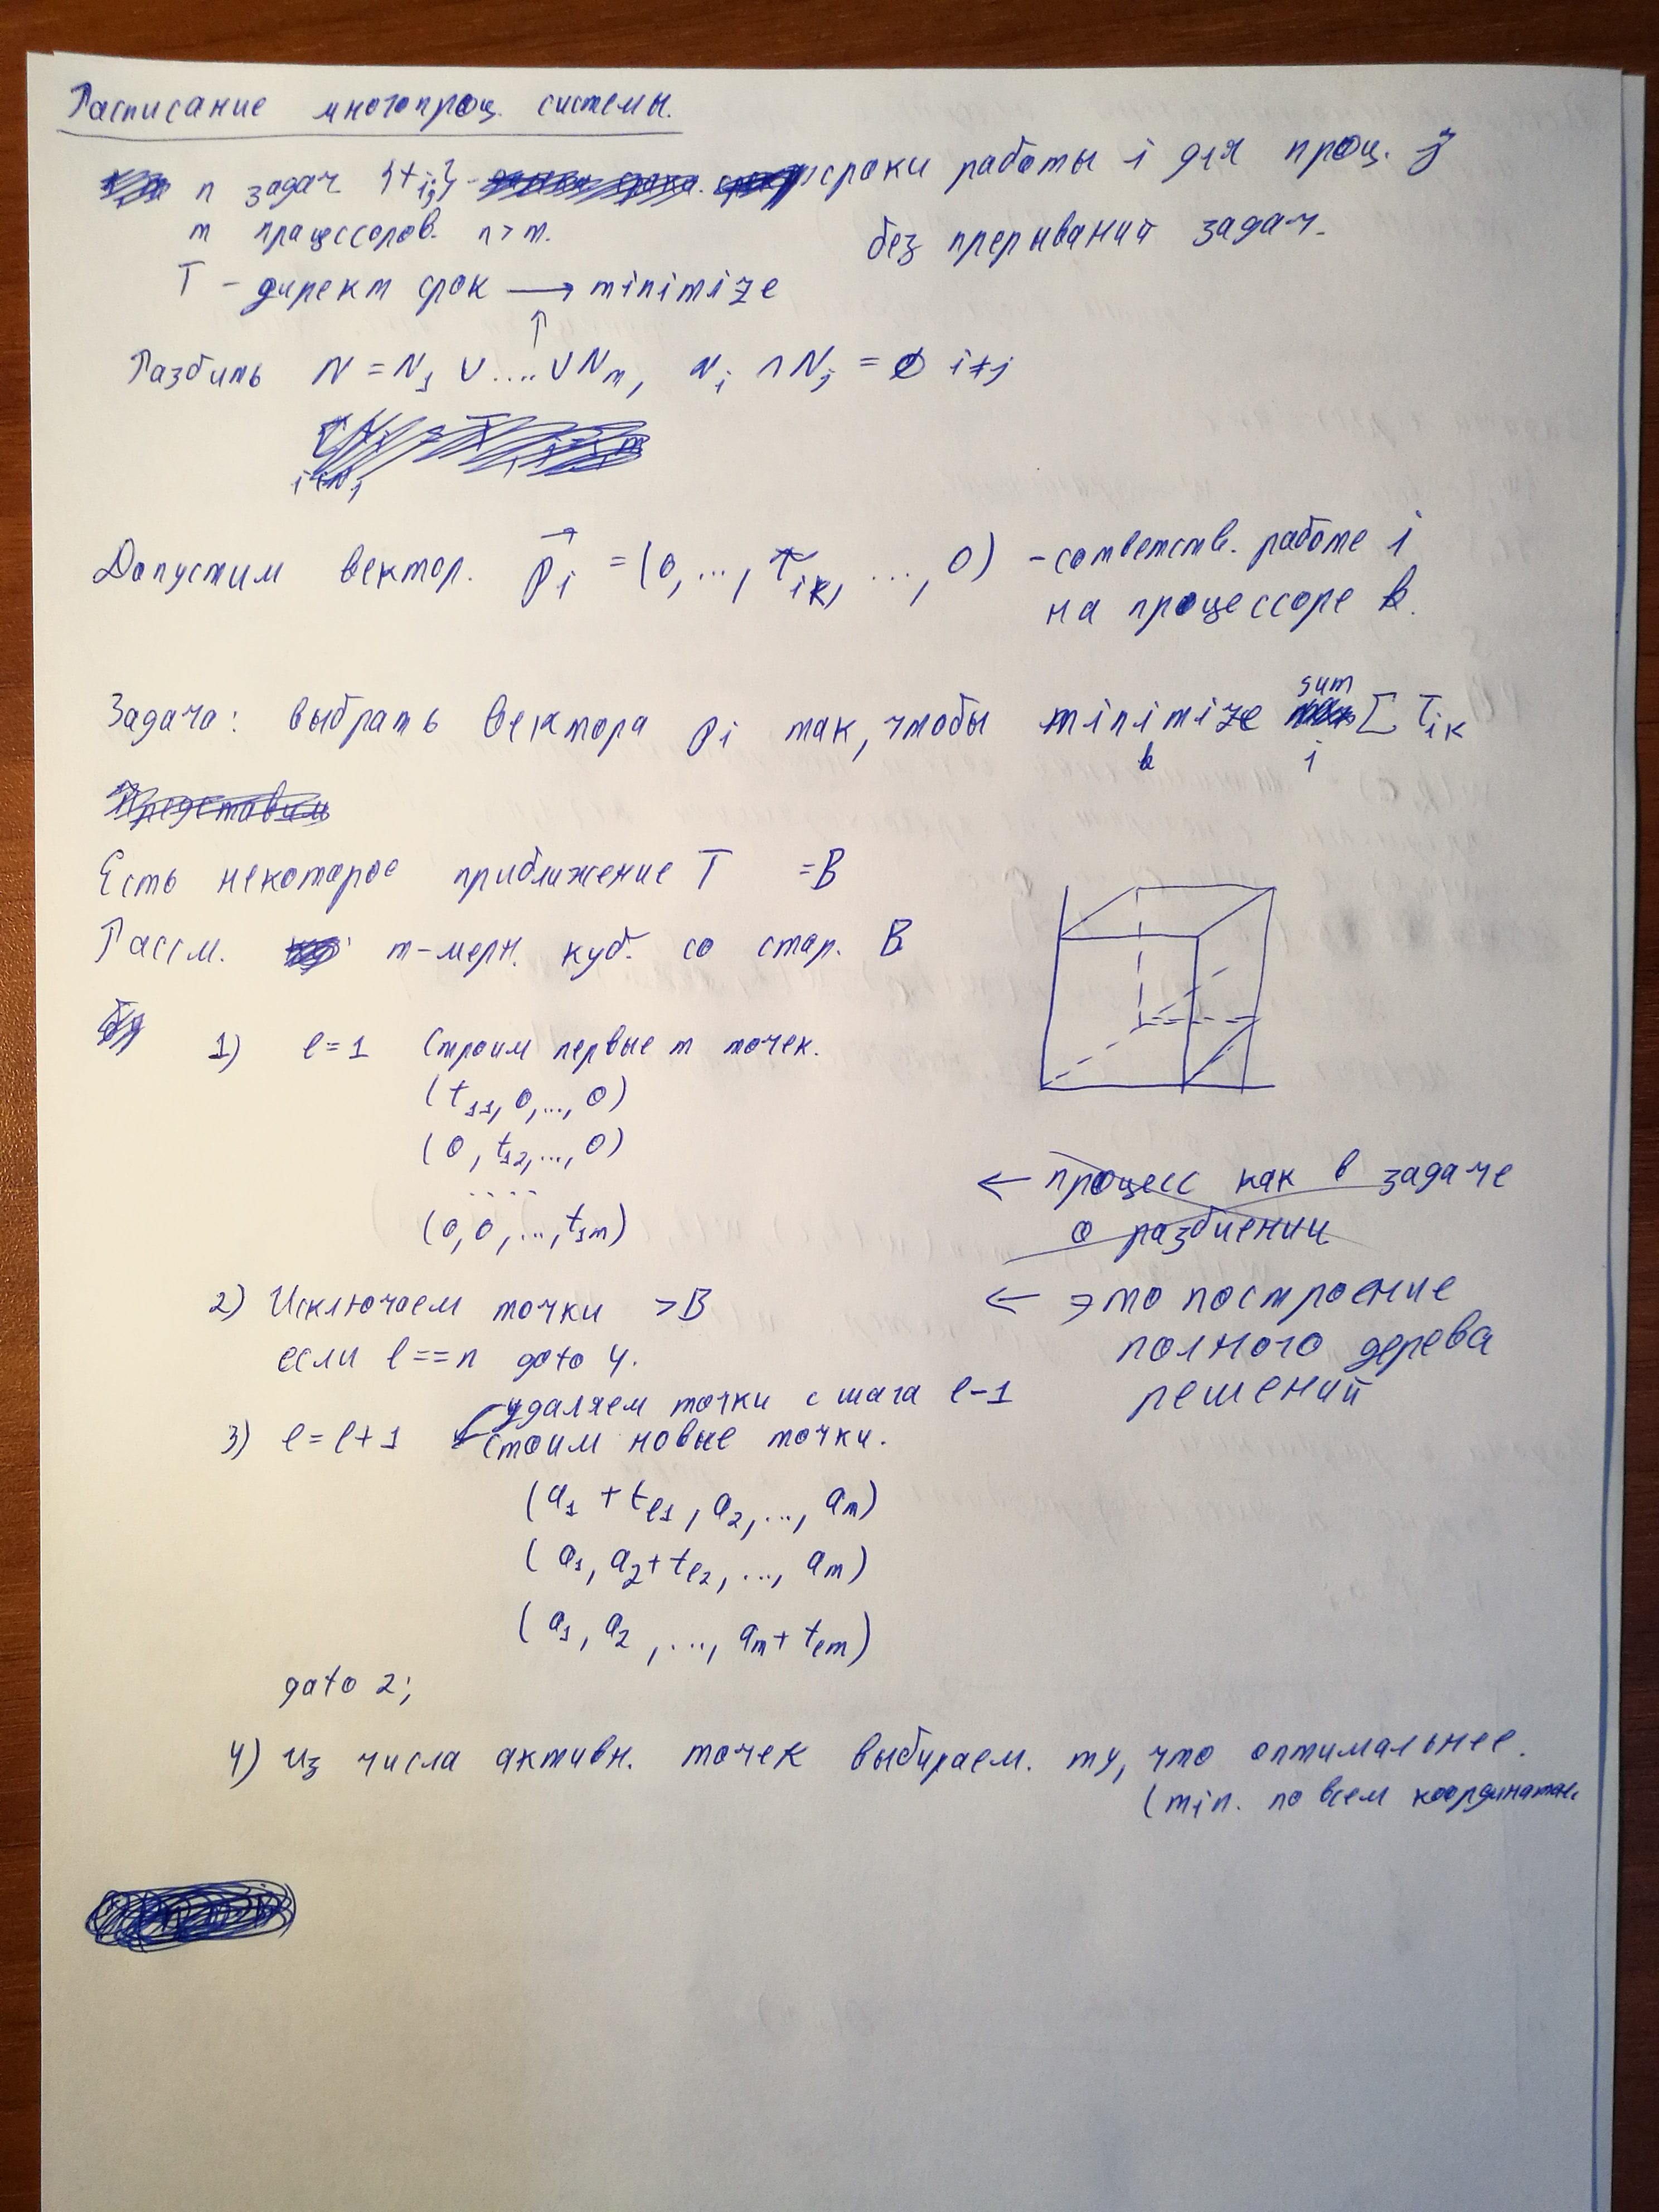 Расписание многопроц. системы.
n задач {t_ij} - сроки работы i для проц. j
m процессоров. n > m.
без прерываний задач.
T - директ срок → minimize
↑
Разбить N = N_1 ∪ .... ∪ N_m, N_i ∩ N_j = ∅ i≠j
Допустим вектор. p_i = (0, ..., τ_ik, ..., 0) - сответств. работе i
на процессоре k.
Задача: выбрать вектора p_i так, чтобы minimize sum Σ τ_ik
k i
Представим
Есть некоторое приближение T = B
Рассм. m-мерн. куб. со стор. B
1) l=1 Строим первые m точек.
(t_11, 0, ..., 0)
(0, t_12, ..., 0)
. . . .
(0, 0, ..., t_1m)
← процесс как в задаче
о разбиении
2) Исключаем точки > B
если l==n goto 4.
← это построение
полного дерева
решений
удаляем точки с шага l-1
3) l = l+1 Стоим новые точки.
(a_1 + t_l1, a_2, ..., a_m)
(a_1, a_2 + t_l2, ..., a_m)
(a_1, a_2, ..., a_m + t_lm)
goto 2;
4) Из числа активн. точек выбираем. ту, что оптимальнее.
(min. по всем координатам